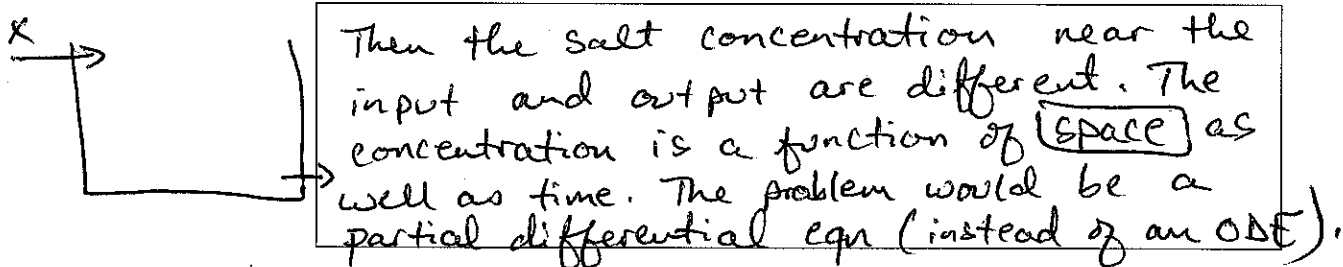 x
Then the salt concentration near the
input and output are different. The
concentration is a function of space as
well as time. The problem would be a
partial differential eqn (instead of an ODE).